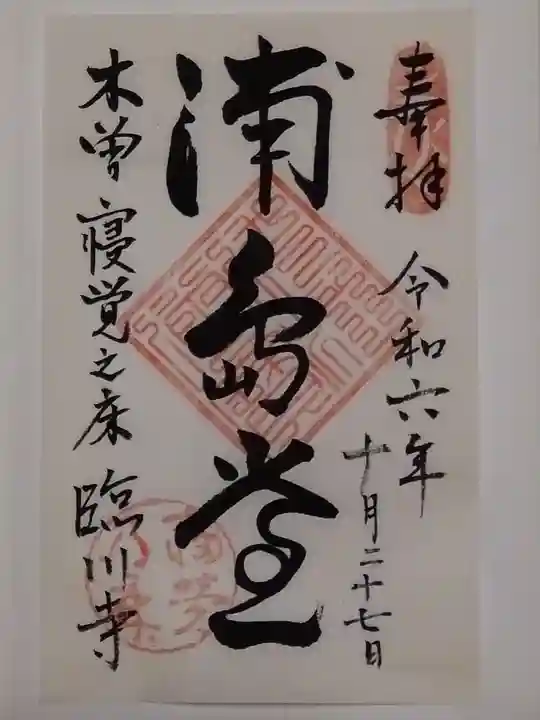 奉拝
令和六年
十月二十七日
浦島堂
木曽寝覚之床 臨川寺